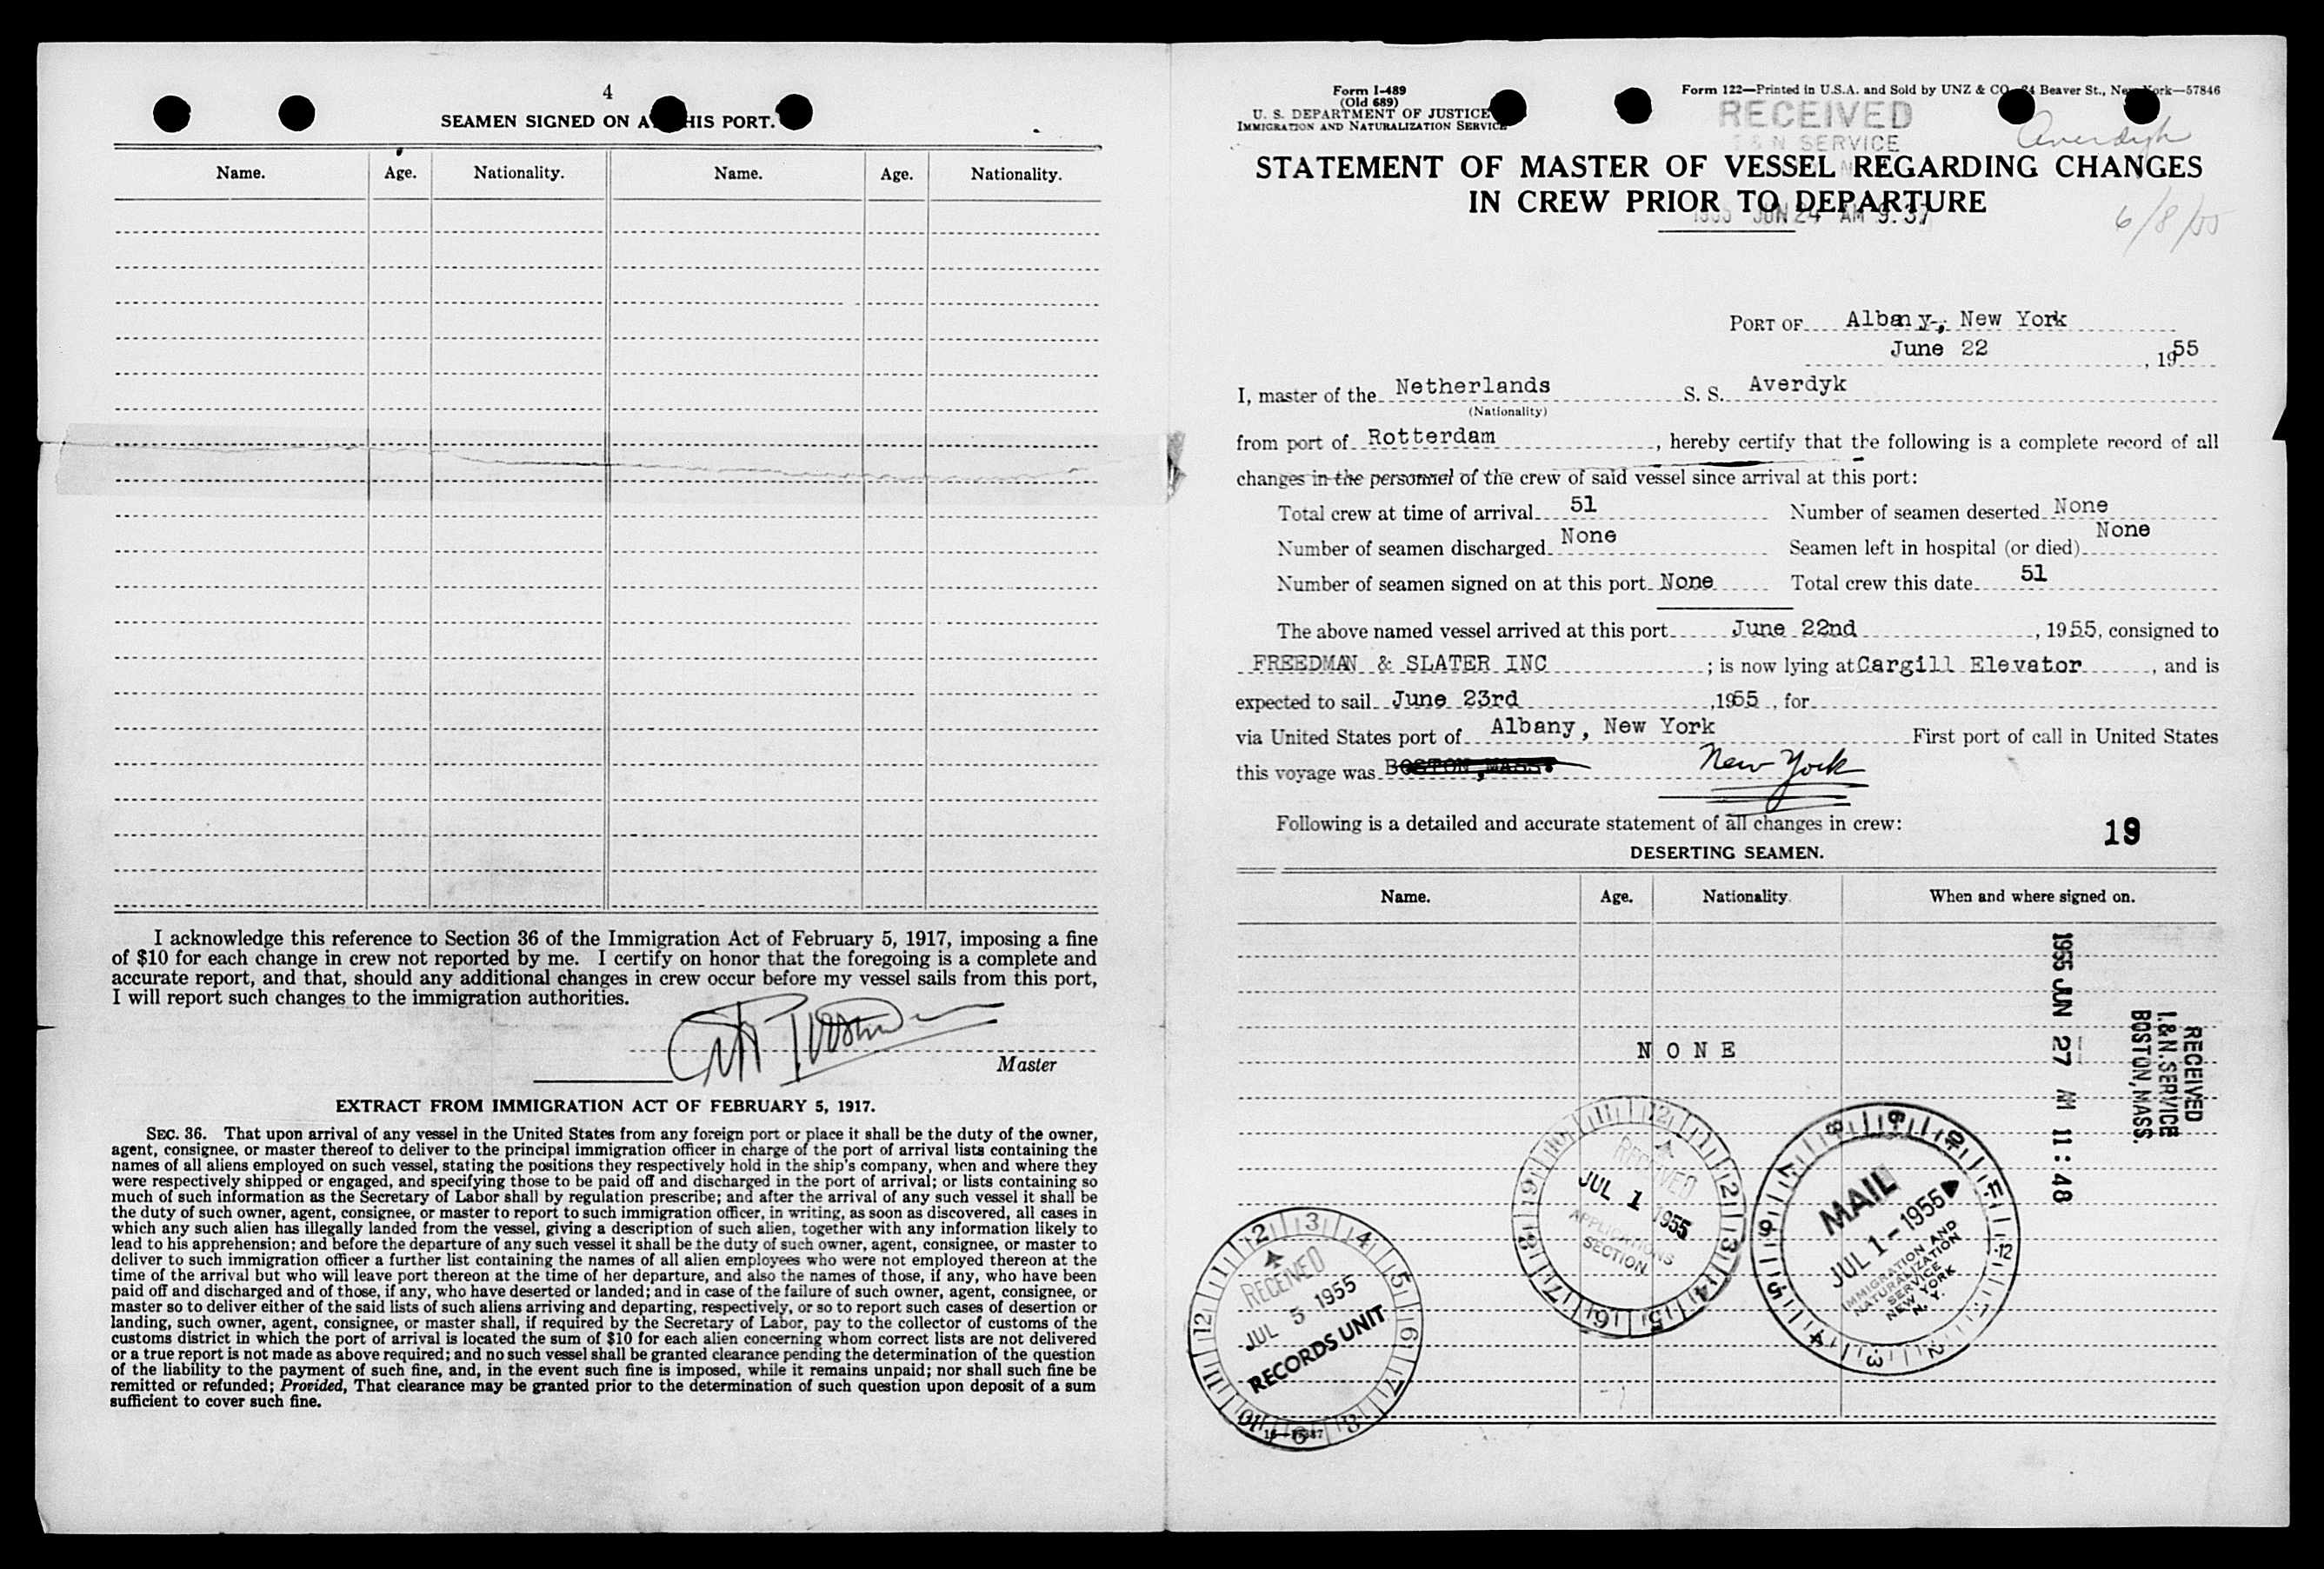 4
SEAMEN SIGNED ON A HIS PORT.
Name. Age. Nationality. Name. Age. Nationality.
I acknowledge this reference to Section 36 of the Immigration Act of February 5, 1917, imposing a fine
of $10 for each change in crew not reported by me. I certify on honor that the foregoing is a complete and
accurate report, and that, should any additional changes in crew occur before my vessel sails from this port,
I will report such changes to the immigration authorities.
Master
EXTRACT FROM IMMIGRATION ACT OF FEBRUARY 5, 1917.
SEC. 36. That upon arrival of any vessel in the United States from any foreign port or place it shall be the duty of the owner,
agent, consignee, or master thereof to deliver to the principal immigration officer in charge of the port of arrival lists containing the
names of all aliens employed on such vessel, stating the positions they respectively hold in the ship's company, when and where they
were respectively shipped or engaged, and specifying those to be paid off and discharged in the port of arrival; or lists containing so
much of such information as the Secretary of Labor shall by regulation prescribe; and after the arrival of any such vessel it shall be
the duty of such owner, agent, consignee, or master to report to such immigration officer, in writing, as soon as discovered, all cases in
which any such alien has illegally landed from the vessel, giving a description of such alien, together with any information likely to
lead to his apprehension; and before the departure of any such vessel it shall be the duty of such owner, agent, consignee, or master to
deliver to such immigration officer a further list containing the names of all alien employees who were not employed thereon at the
time of the arrival but who will leave port thereon at the time of her departure, and also the names of those, if any, who have been
paid off and discharged and of those, if any, who have deserted or landed; and in case of the failure of such owner, agent, consignee, or
master so to deliver either of the said lists of such aliens arriving and departing, respectively, or so to report such cases of desertion or
landing, such owner, agent, consignee, or master shall, if required by the Secretary of Labor, pay to the collector of customs of the
customs district in which the port of arrival is located the sum of $10 for each alien concerning whom correct lists are not delivered
or a true report is not made as above required; and no such vessel shall be granted clearance pending the determination of the question
of the liability to the payment of such fine, and, in the event such fine is imposed, while it remains unpaid; nor shall such fine be
remitted or refunded; Provided, That clearance may be granted prior to the determination of such question upon deposit of a sum
sufficient to cover such fine.
Form I-489
(Old 689)
U. S. DEPARTMENT OF JUSTICE
IMMIGRATION AND NATURALIZATION SERVICE
Form 122—Printed in U.S.A. and Sold by UNZ & CO. 24 Beaver St., New York—57846
RECEIVED
I & N SERVICE
Averdyk
STATEMENT OF MASTER OF VESSEL REGARDING CHANGES
IN CREW PRIOR TO DEPARTURE
1955 JUN 24 AM 9:37
6/8/55
PORT OF Albany, New York
June 22, 1955
I, master of the Netherlands S. S. Averdyk
(Nationality)
from port of Rotterdam, hereby certify that the following is a complete record of all
changes in the personnel of the crew of said vessel since arrival at this port:
Total crew at time of arrival 51 Number of seamen deserted None
Number of seamen discharged None Seamen left in hospital (or died) None
Number of seamen signed on at this port None Total crew this date 51
The above named vessel arrived at this port June 22nd, 1955, consigned to
FREEDMAN & SLATER INC; is now lying at Cargill Elevator, and is
expected to sail June 23rd, 1955, for
via United States port of Albany, New York First port of call in United States
this voyage was BOSTON, MASS. New York
Following is a detailed and accurate statement of all changes in crew:
19
DESERTING SEAMEN.
Name. Age. Nationality. When and where signed on.
N O N E
RECEIVED
I.&N. SERVICE
BOSTON, MASS.
1955 JUN 27 AM 11:48
RECEIVED
JUL 1 1955
APPLICATIONS
SECTION
MAIL
JUL 1-1955
IMMIGRATION AND
NATURALIZATION
SERVICE
NEW YORK
N. Y.
RECEIVED
JUL 5 1955
RECORDS UNIT